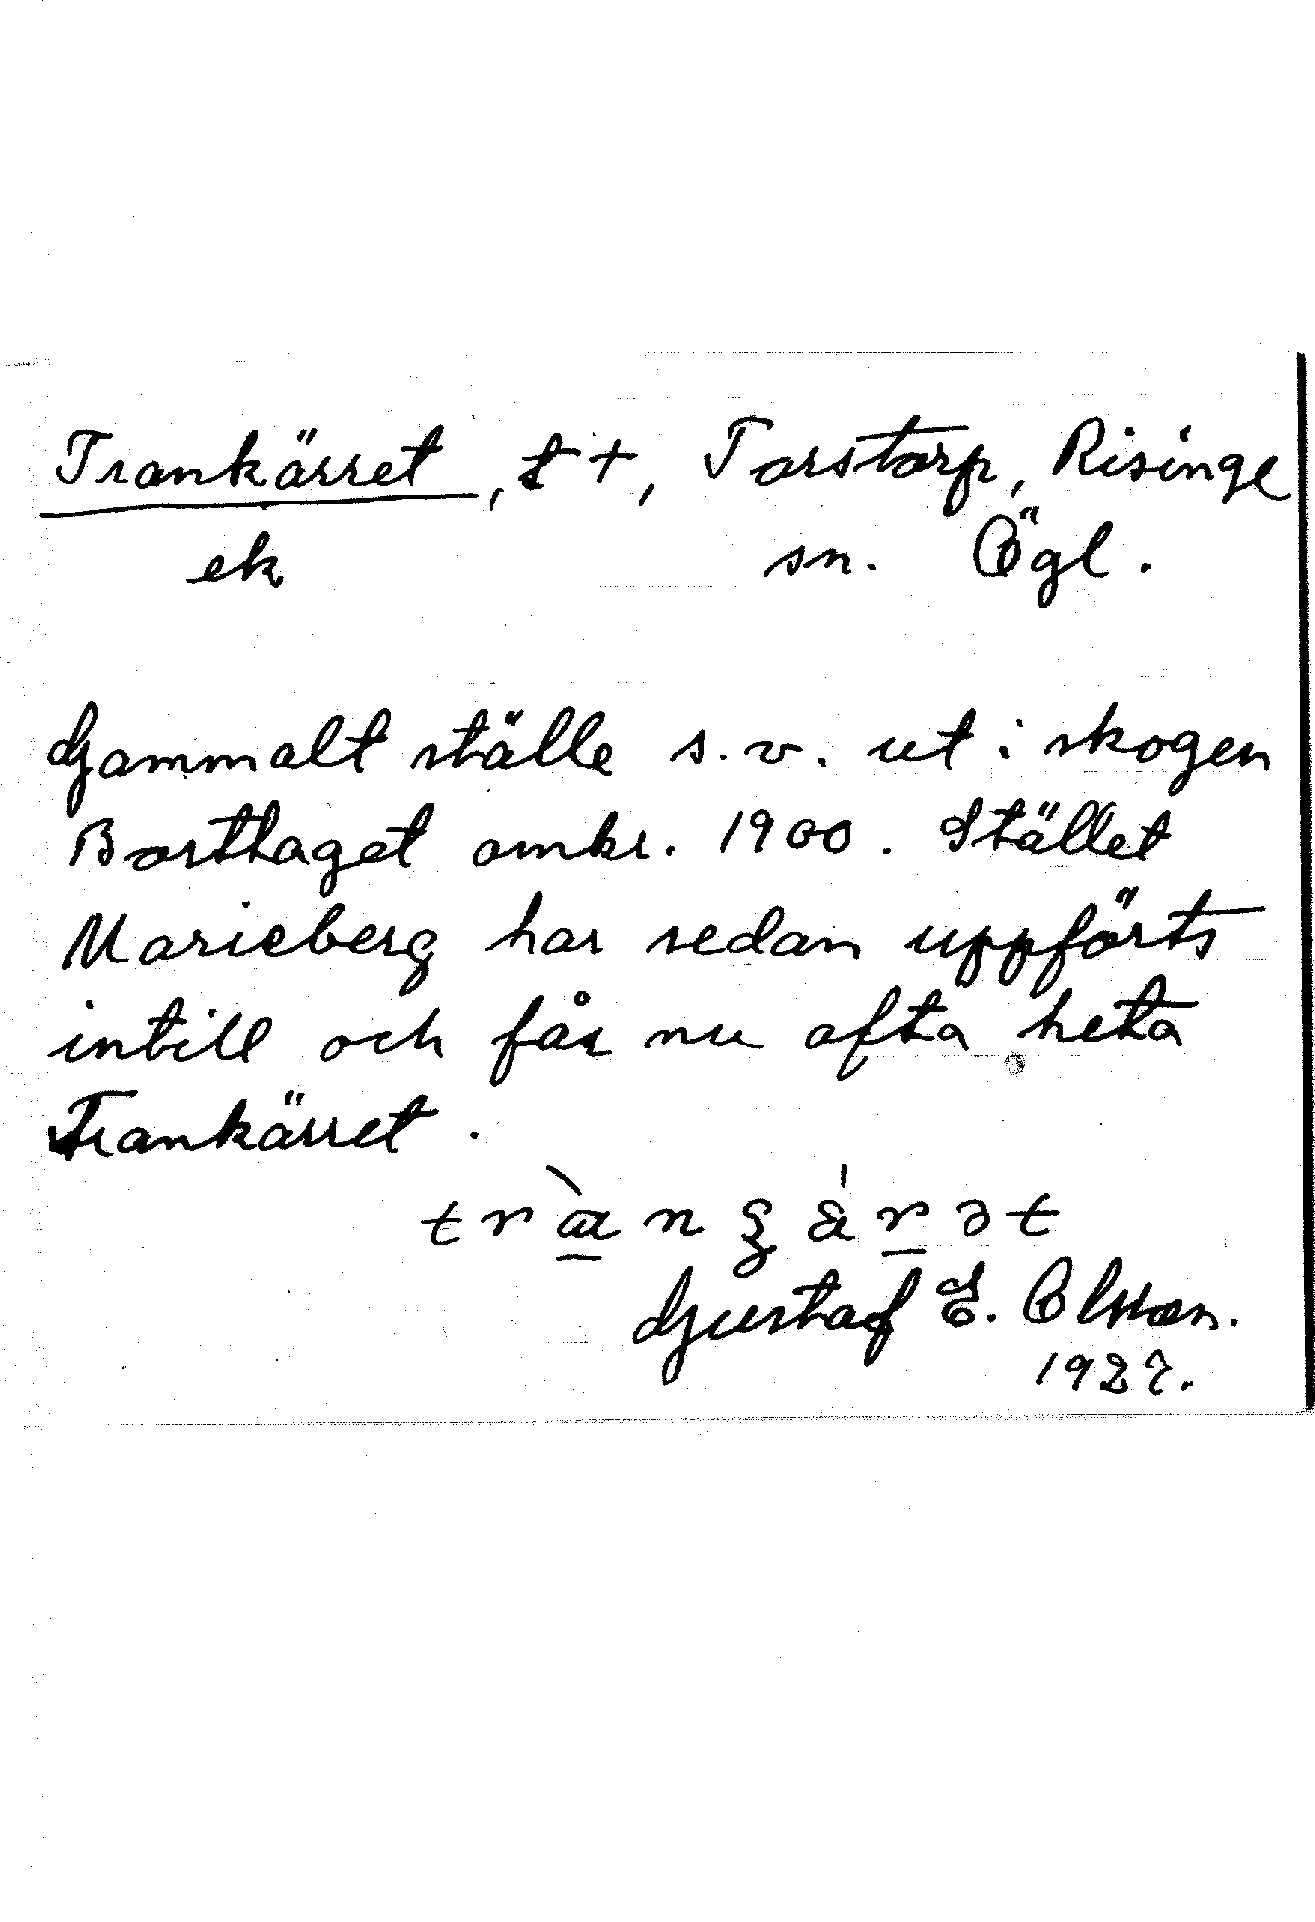 Trankärret, t +, Torstorp, Risinge
ek sn. Ögl.
Gammalt ställe s.v. ut i skogen
Borttaget omkr. 1900. Stället
Marieberg har sedan uppförts
intill och får nu ofta heta
Trankärret.
Gustaf E. Olsson.
1927.